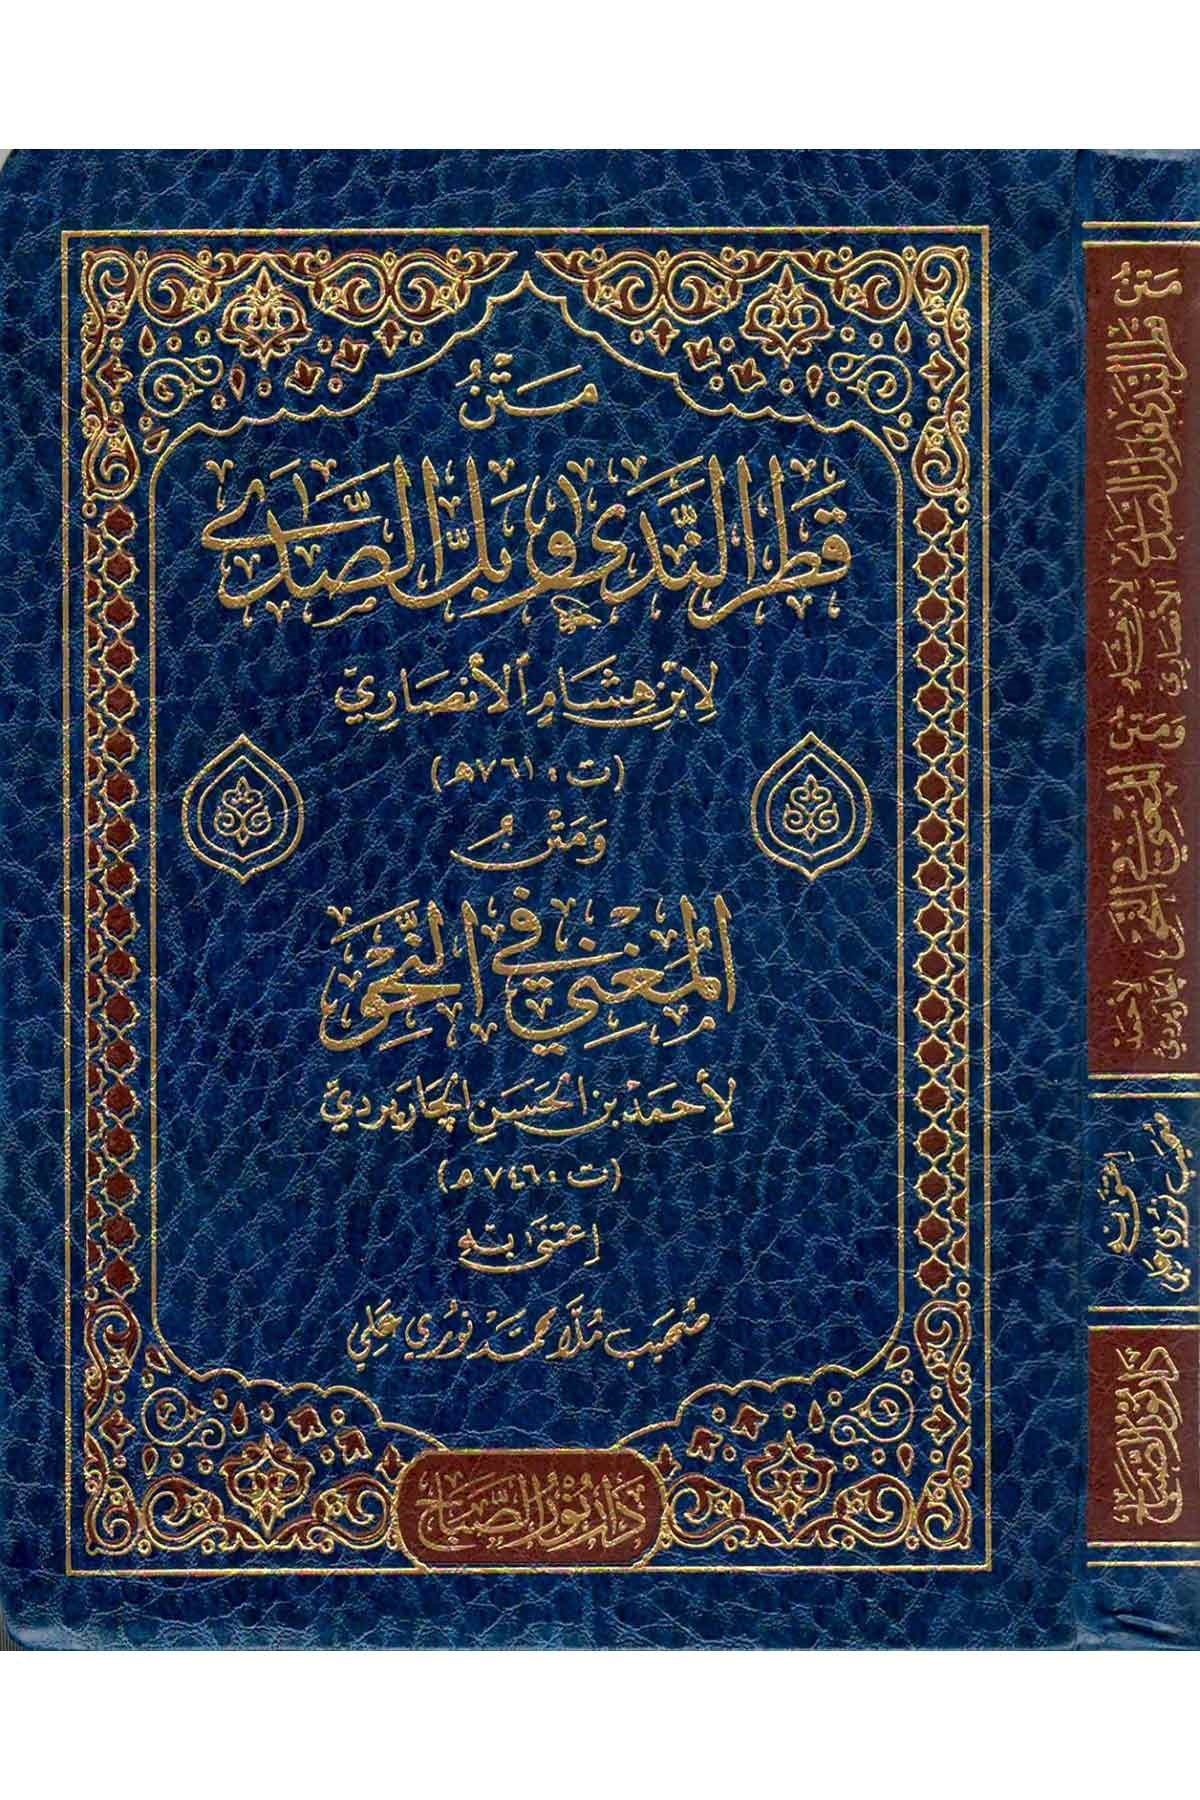 مَتْنُ
قَطْرِ النَّدَى وَبَلِّ الصَّدَى
لِابْنِ هِشَامٍ الأَنْصَارِيِّ
(ت: ٧٦١هـ)
وَمَتْنُ
المُغْنِي فِي النَّحْوِ
لِأَحْمَدَ بْنِ الحَسَنِ الجَارَبَرْدِيِّ
(ت: ٧٤٦هـ)
اِعْتَنَى بِهِ
صُهَيْب مُلَّا مُحَمَّد نُورِي عَلِي
دَارُ نُورِ الصَّبَاحِ
مَتْنُ قَطْرِ النَّدَى وَبَلِّ الصَّدَى لِابْنِ هِشَامٍ الأَنْصَارِيِّ وَمَتْنُ المُغْنِي فِي النَّحْوِ لِأَحْمَدَ الجَارَبَرْدِيِّ
اِعْتَنَى بِهِ
صُهَيْب نُورِي عَلِي
دَارُ نُورِ الصَّبَاحِ